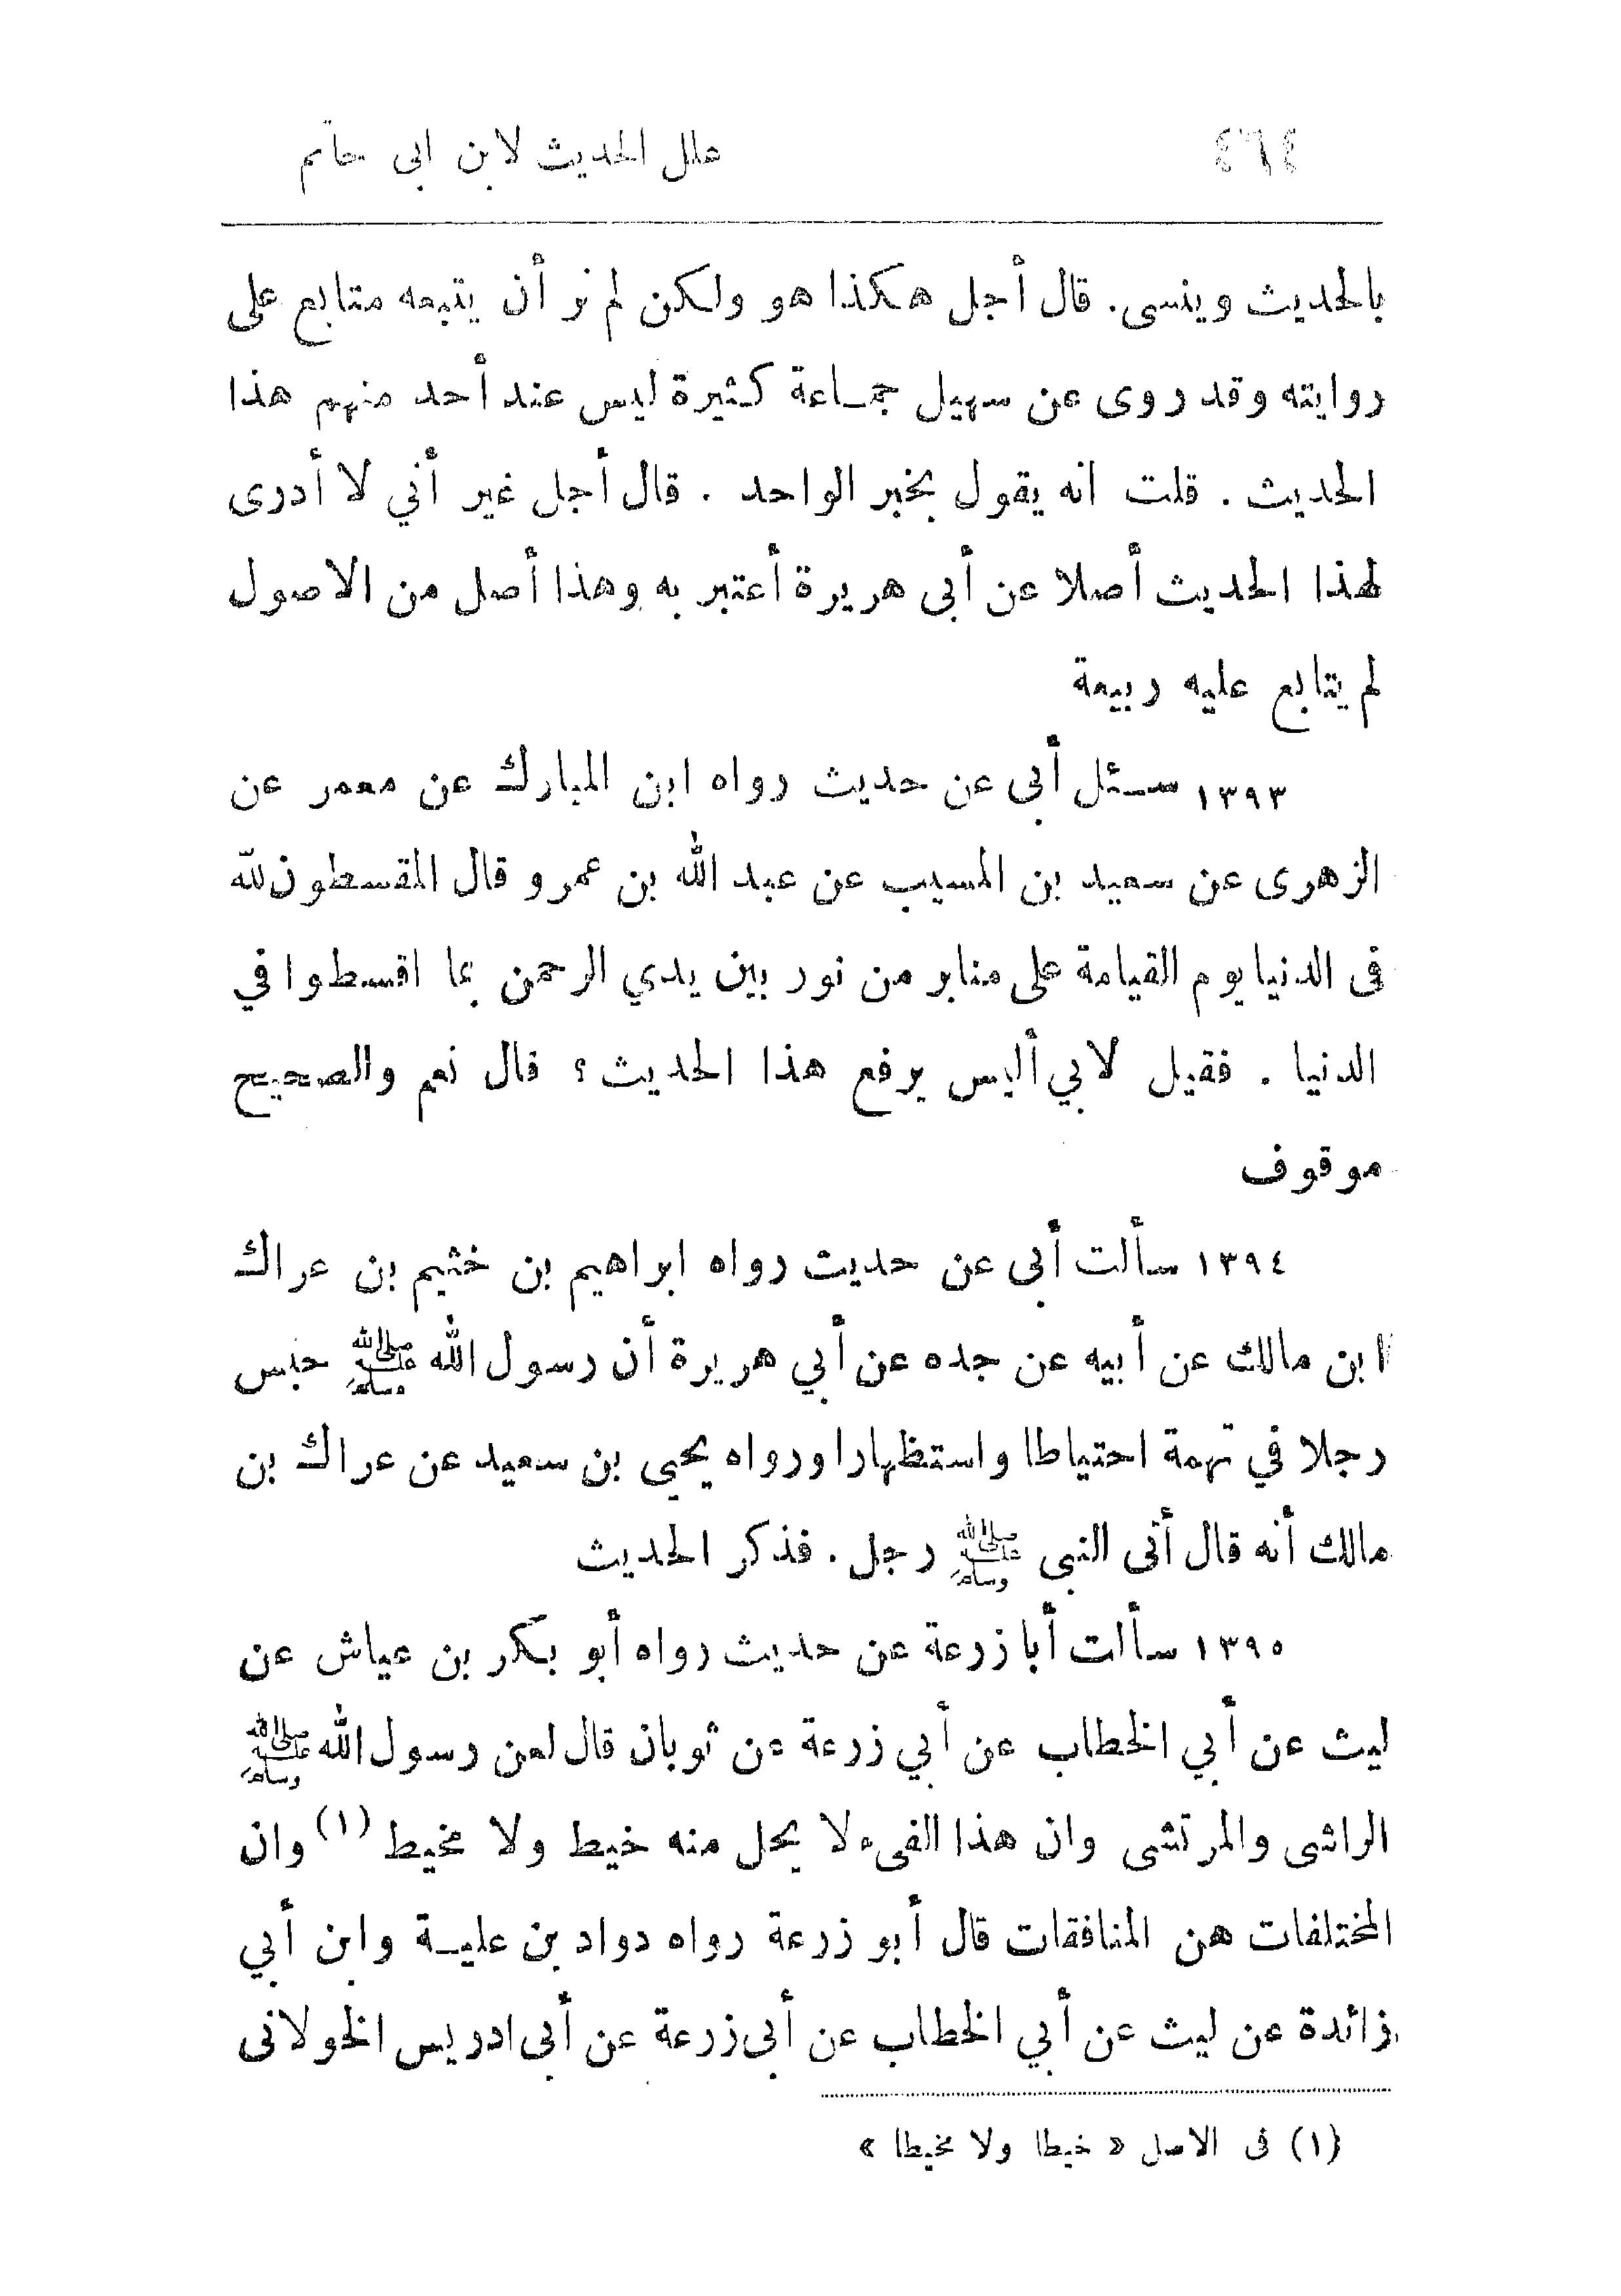 ٤٦٤ علل الحديث لابن ابى حاتم
بالحديث وينسى. قال أجل هكذا هو ولكن لم نر أن يتبعه متابع على
روايته وقد روى عن سهيل جماعة كثيرة ليس عند أحد منهم هذا
الحديث . قلت انه يقول بخبر الواحد . قال أجل غير أني لا أدرى
لهذا الحديث أصلا عن أبى هريرة أعتبر به وهذا أصل من الاصول
لم يتابع عليه ربيعة
١٣٩٣ سئل أبى عن حديث رواه ابن المبارك عن معمر عن
الزهرى عن سعيد بن المسيب عن عبد الله بن عمرو قال المقسطون لله
فى الدنيا يوم القيامة على منابر من نور بين يدي الرحمن بما اقسطوا في
الدنيا . فقيل لابي أليس يرفع هذا الحديث ؟ قال نعم والصحيح
موقوف
١٣٩٤ سألت أبى عن حديث رواه ابراهيم بن خثيم بن عراك
ابن مالك عن أبيه عن جده عن أبي هريرة أن رسول الله ﷺ حبس
رجلا في تهمة احتياطا واستظهارا ورواه يحيى بن سعيد عن عراك بن
مالك أنه قال أتى النبى ﷺ رجل . فذكر الحديث
١٣٩٥ سألت أبا زرعة عن حديث رواه أبو بكر بن عياش عن
ليث عن أبي الخطاب عن أبي زرعة عن ثوبان قال لعن رسول الله ﷺ
الراشى والمرتشى وان هذا الفىء لا يحل منه خيط ولا مخيط (١) وان
المختلفات هن المنافقات قال أبو زرعة رواه دواد بن علية وابن أبي
زائدة عن ليث عن أبي الخطاب عن أبى زرعة عن أبى ادريس الخولانى
(١) فى الاصل « خيطا ولا مخيطا »